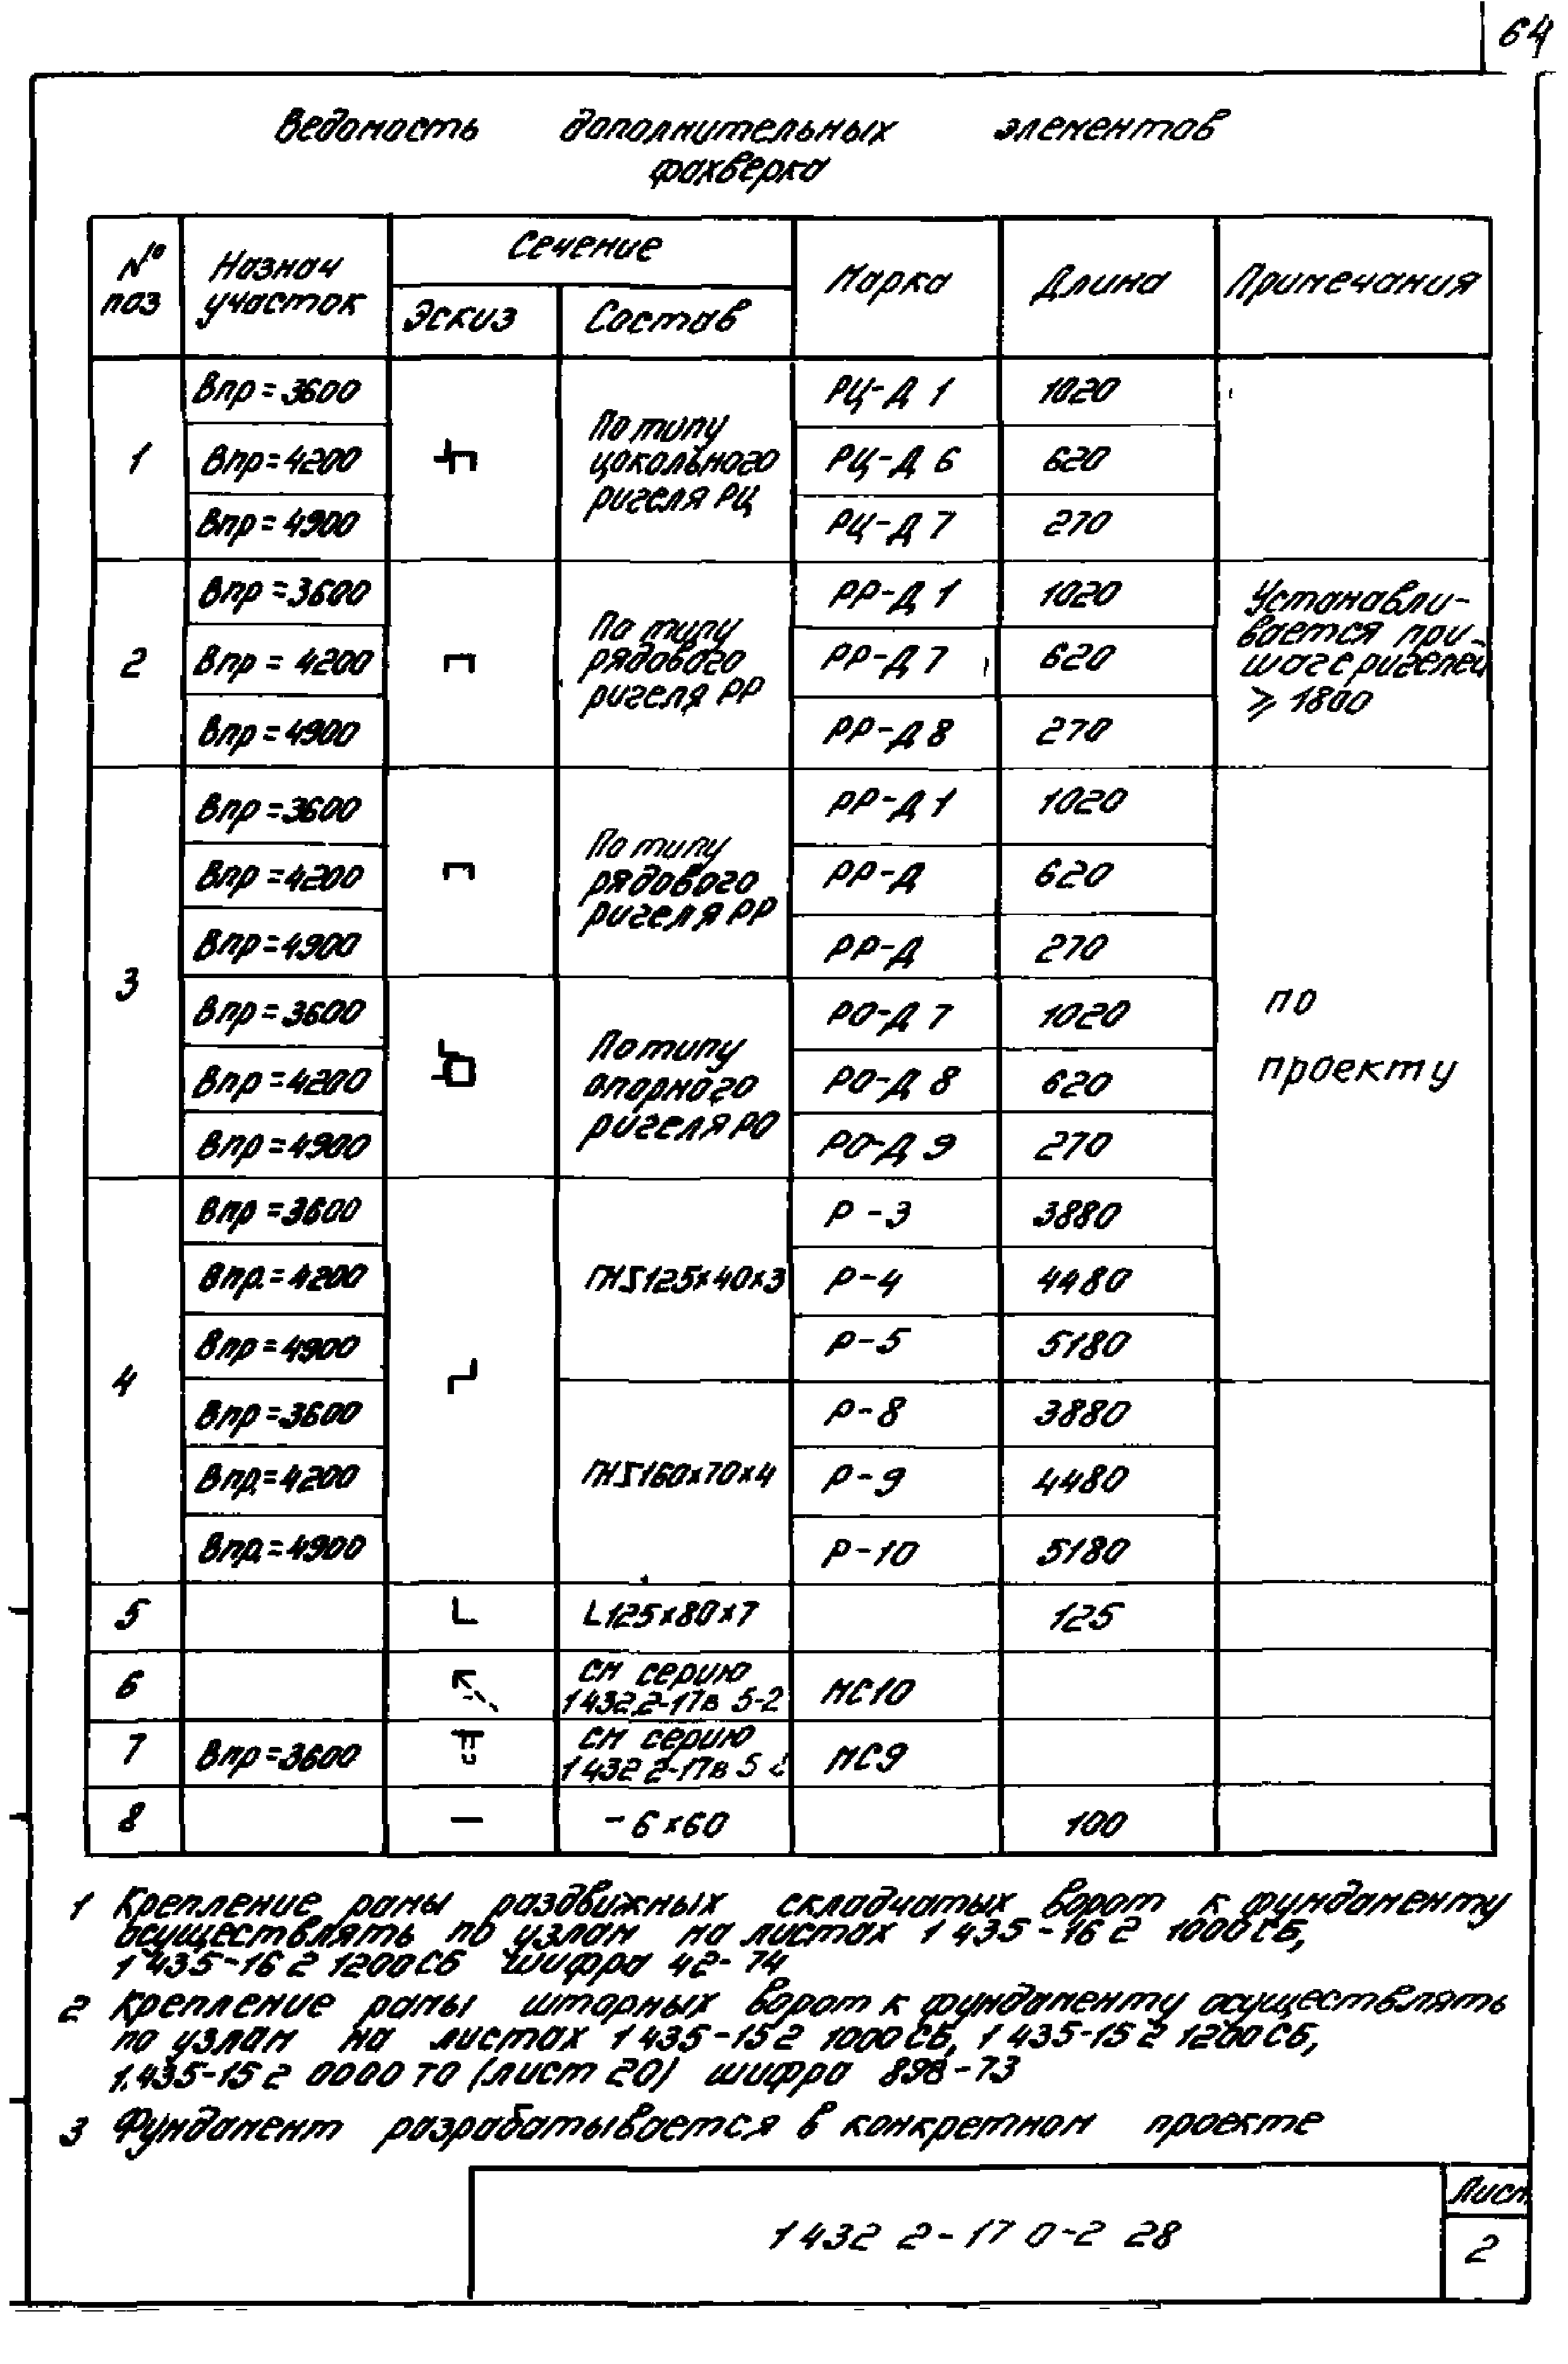 64
Ведомость дополнительных элементов
фахверка
№ поз
Назнач участок
Сечение
Эскиз
Состав
Марка
Длина
Примечания
1
Впр=3600
По типу
цокольного
ригеля РЦ
РЦ-Д 1
1020
Впр=4200
РЦ-Д 6
620
Впр=4900
РЦ-Д 7
270
2
Впр=3600
По типу
рядового
ригеля РР
РР-Д 1
1020
Устанавли-
вается при
шаге ригелей
⩾ 1800
Впр=4200
РР-Д 7
620
Впр=4900
РР-Д 8
270
3
Впр=3600
По типу
рядового
ригеля РР
РР-Д 1
1020
Впр=4200
РР-Д
620
Впр=4900
РР-Д
270
Впр=3600
По типу
опорного
ригеля РО
РО-Д 7
1020
по
проекту
Впр=4200
РО-Д 8
620
Впр=4900
РО-Д 9
270
4
Впр=3600
125×40×3
Р-3
3880
Впр.=4200
Р-4
4480
Впр=4900
Р-5
5180
Впр=3600
160×70×4
Р-8
3880
Впр.=4200
Р-9
4480
Впр.=4900
Р-10
5180
5
L125×80×7
125
6
см серию
1432.2-17в 5-2
МС10
7
Впр=3600
см серию
1432 2-17в 5
МС9
8
-6×60
100
1 Крепление рамы раздвижных складчатых ворот к фундаменту
осуществлять по узлам на листах 1 435-16 2 1000СБ,
1 435-16 2 1200СБ шифра 42-74
2 Крепление рамы шторных ворот к фундаменту осуществлять
по узлам на листах 1 435-15 2 1000СБ, 1 435-15 2 1200СБ,
1.435-15 2 0000 ТО (лист 20) шифра 898-73
3 Фундамент разрабатывается в конкретном проекте
1 432 2-17 0-2 28
Лист
2